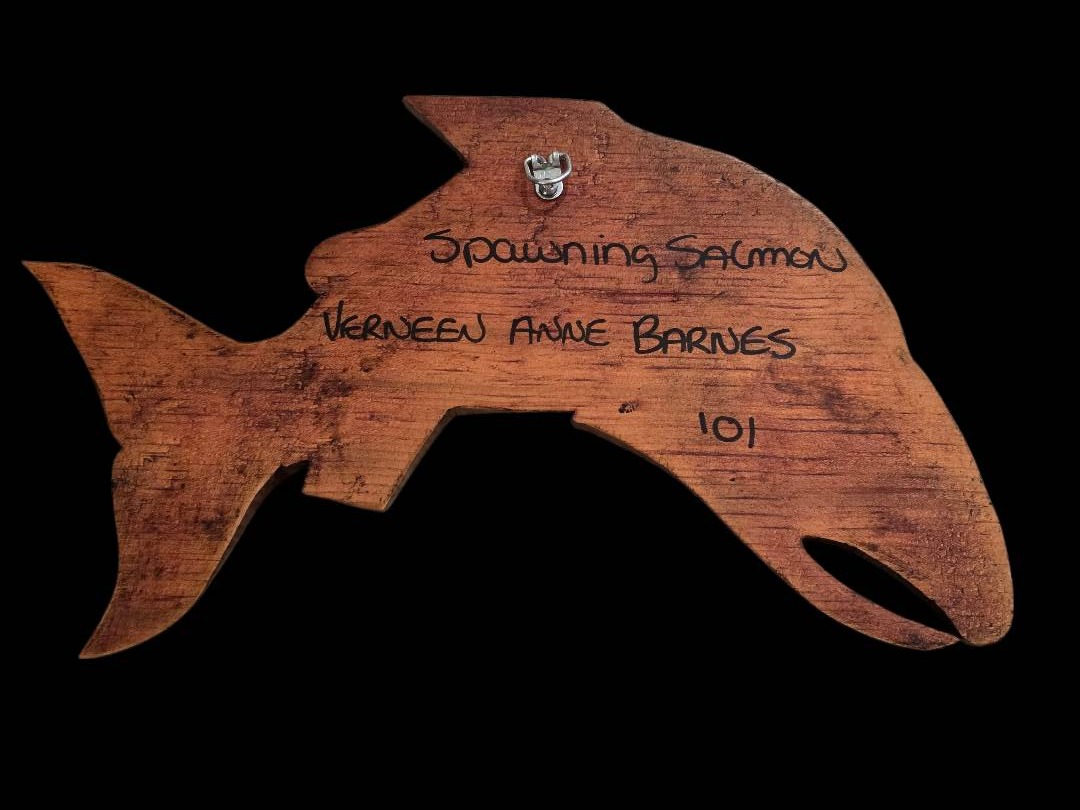 Spawning Salmon
VERNEEN ANNE BARNES
'01